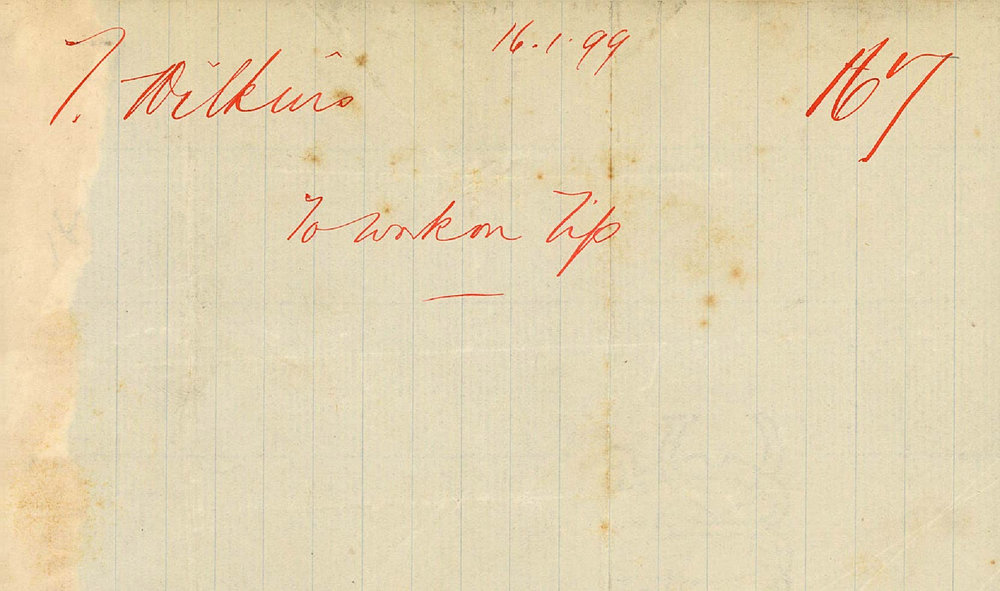 T. Wilkins 16.1.99 167
To work on Tip